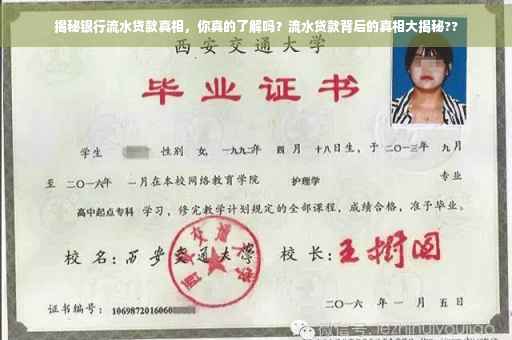 揭秘银行流水贷款真相，你真的了解吗？流水贷款背后的真相大揭秘??
西安交通大学
毕业证书
学生 性别 女, 一九九二年 四月 十八日生，于 二〇一三年 九月
至 二〇一六年 一月在本校网络教育学院 护理学 专业
高中起点专科 学习，修完教学计划规定的全部课程，成绩合格，准予毕业。
校名：西安交通大学 校长：王树国
西安交通大学
证书编号：1069872016060
二〇一六年一月五日
微信号: jezhinuiyoujiao